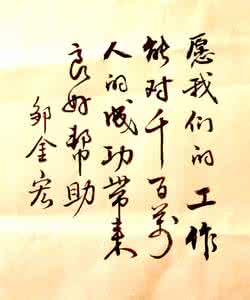 愿我们的工作
能对千百万
人的成功带来
良好帮助
邹金宏